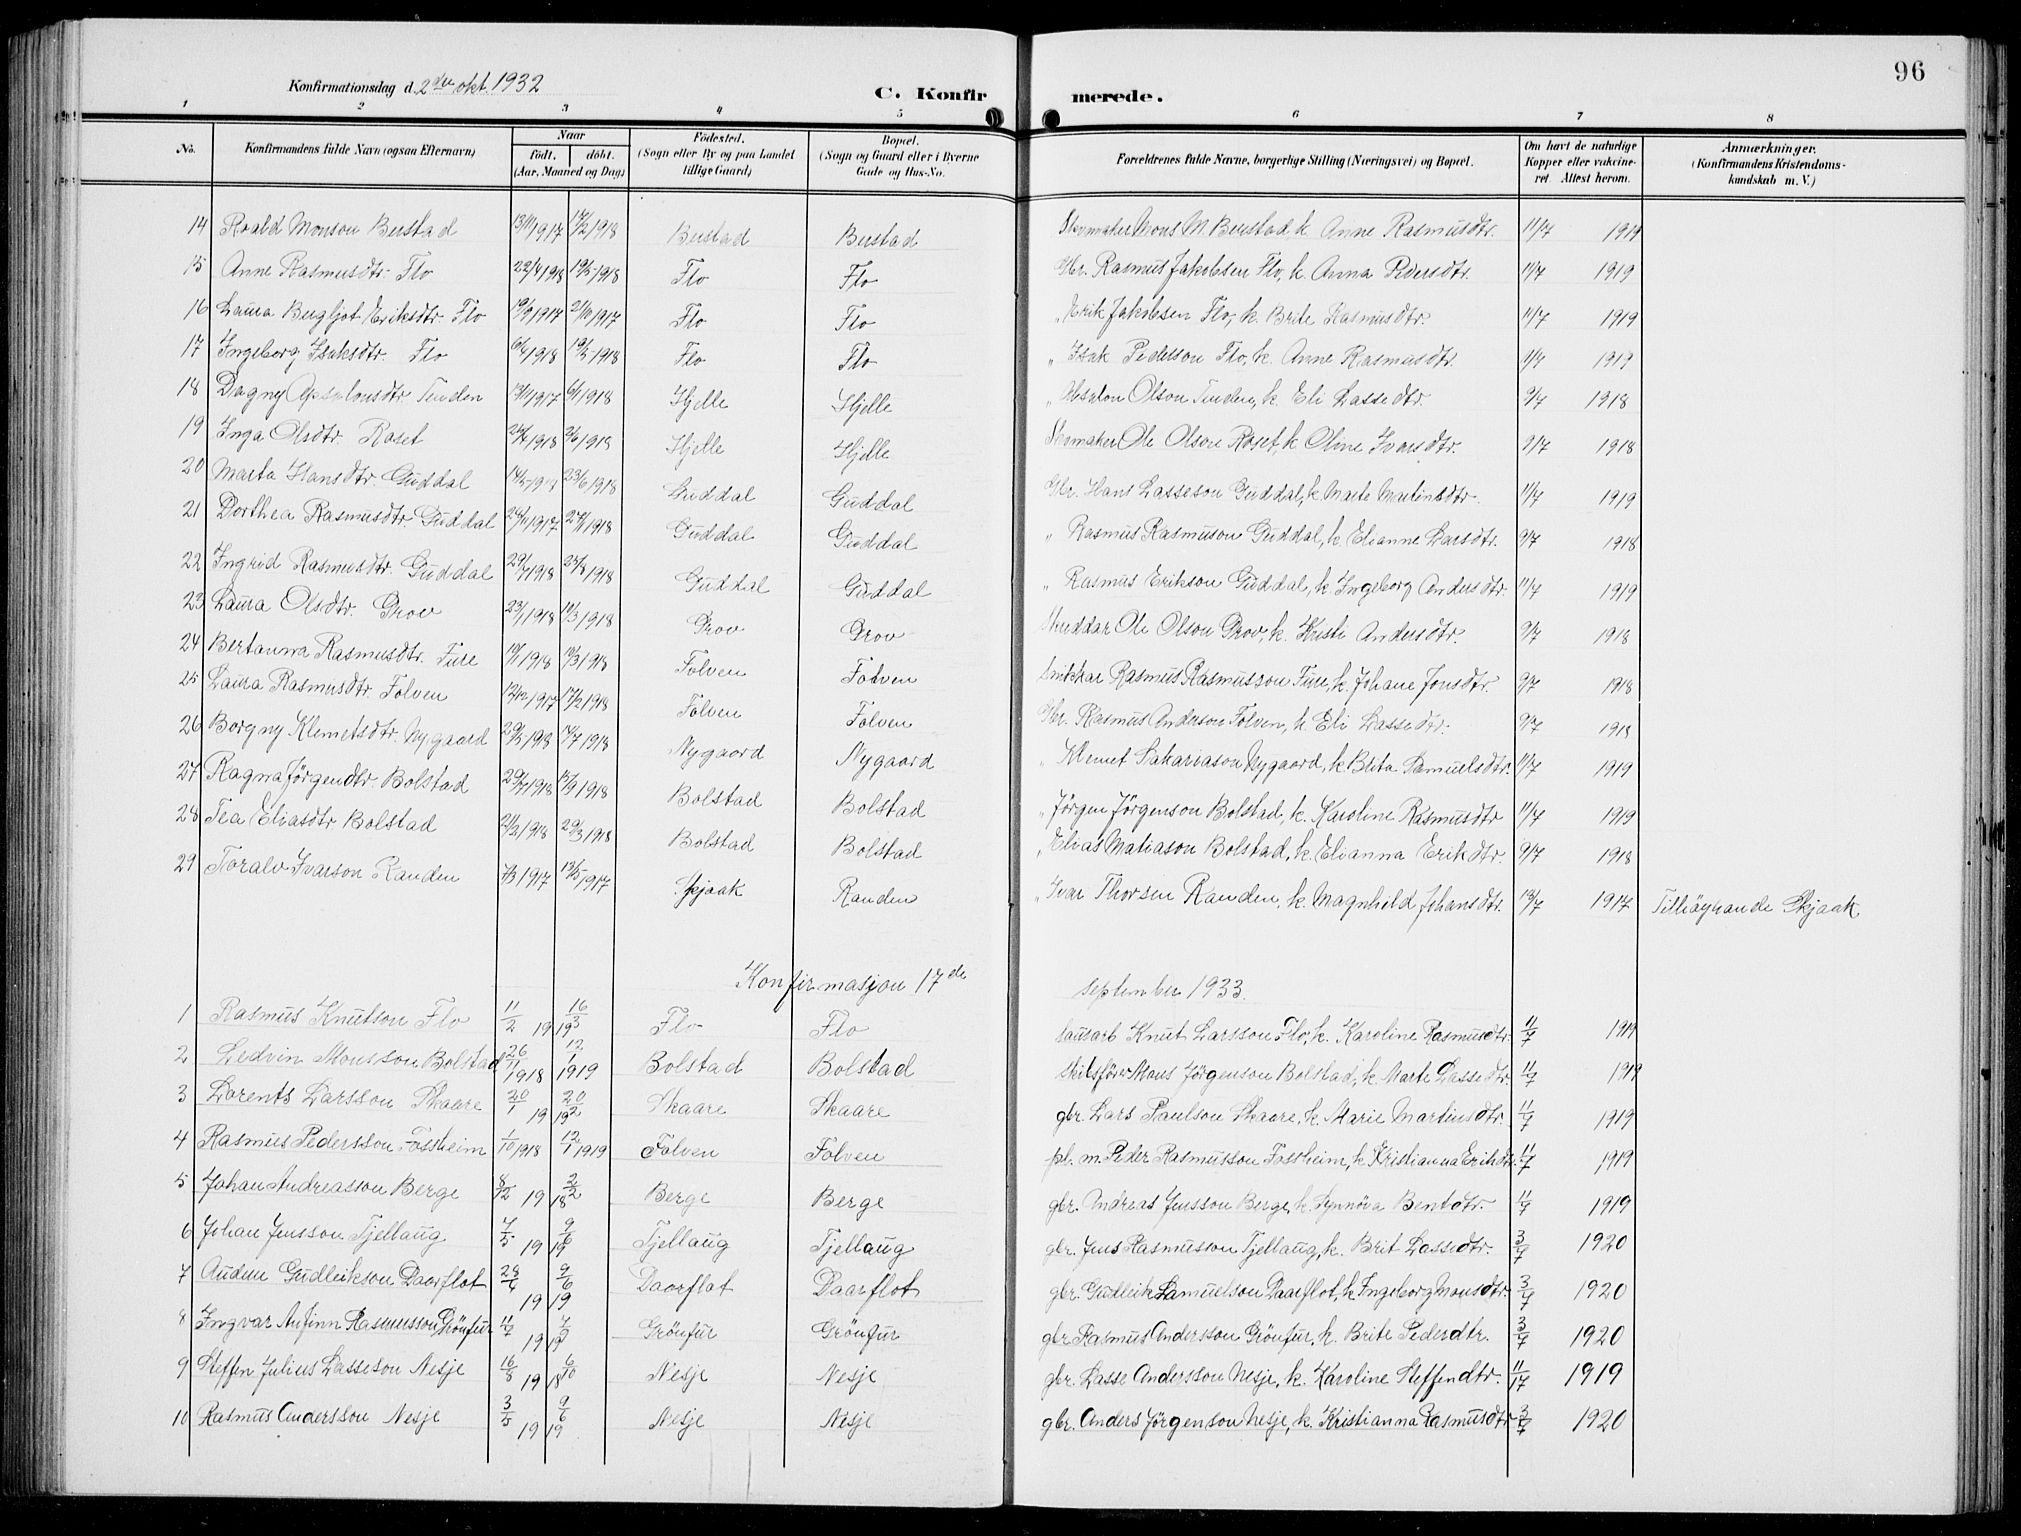 96
Konfirmationsdag d. 2den okt. 1932
C. Konfirmerede.
1 2 3 4 5 6 7 8
No. Konfirmandens fulde Navn (ogsaa Efternavn) Naar født. døbt. (Aar, Maaned og Dag) Fødested. (Sogn eller By og paa Landet tillige Gaard) Bopæl. (Sogn og Gaard eller i Byerne Gade og Hus-No. Forældrenes fulde Navne, borgerlige Stilling (Næringsvei) og Bopæl. Om havt de naturlige Kopper eller vakcineret. Attest herom. Anmærkninger. (Konfirmandens Kristendomskundskab m. V.)
14 Roald Monson Bustad 13/11 1917 17/2 1918 Bustad Bustad Skomaker Mons M. Bustad, k. Anne Rasmusdtr. 11/7 1919
15 Anne Rasmusdtr. Flo 22/4 1918 19/5 1918 Flo Flo Gbr. Rasmus Jakobsen Flo, k. Anna Pedersdtr. 11/7 1919
16 Laura Bergljot Eriksdtr. Flo 19/9 1917 21/10 1917 Flo Flo " Erik Jakobsen Flo, k. Brite Rasmusdtr. 11/7 1919
17 Ingeborg Isaksdtr. Flo 6/4 1918 19/5 1918 Flo Flo " Isak Pedersson Flo, k. Anne Rasmusdtr. 11/7 1919
18 Dagny Apsalonsdtr. Tenden 13/11 1917 6/1 1918 Hjelle Hjelle " Absalon Olson Tenden, k. Eli Lassedtr. 9/7 1918
19 Inga Olsdtr. Roset 1918 2/6 1918 Hjelle Hjelle Skomaker Ole Olson Roset, k. Oline Ivarsdtr. 9/7 1918
20 Marta Hansdtr. Guddal 14/5 1918 23/6 1918 Guddal Guddal Gbr. Hans Lasseson Guddal, k. Marte Martinsdtr. 11/7 1919
21 Dorthea Rasmusdtr Guddal 1917 1918 Guddal Guddal " Rasmus Rasmuson Guddal, k. Elianne Larsdtr. 9/7 1918
22 Ingrid Rasmusdtr. Guddal 29/7 1918 25/8 1918 Guddal Guddal " Rasmus Erikson Guddal, k. Ingeborg Andersdtr. 11/7 1919
23 Laura Olsdtr. Grov 23/1 1918 10/3 1918 Grov Grov Skreddar Ole Olson Grov, k. Kristi Andersdtr. 9/7 1918
24 Bertanna Rasmusdtr. Fure 1918 10/3 1918 Folven Folven Snikkar Rasmus Rasmusson Fure, k. Johane Jonsdtr. 9/7 1918
25 Laura Rasmusdtr Folven 12/12 1917 17/2 1918 Folven Folven Gbr. Rasmus Anderson Folven, k. Eli Lassedtr. 9/7 1918
26 Borgny Klemetsdtr. Nygaard 29/5 1918 14/7 1918 Nygaard Nygaard " Klemet Sakariason Nygaard, k. Brita Samuelsdtr. 11/7 1919
27 Ragna Jørgendtr. Bolstad 29/7 1918 15/9 1918 Bolstad Bolstad " Jørgen Jørgenson Bolstad, k. Karoline Rasmusdtr 11/7 1919
28 Tea Eliasdtr Bolstad 21/2 1918 29/3 1918 Bolstad Bolstad " Elias Matiason Bolstad, k. Elianna Erikdtr. 9/7 1918
29 Toralv Ivarson Randen 7/3 1917 13/5 1917 Skjaak Randen " Ivar Thorsen Randen, k. Magnhild Johansdtr. 13/7 1917 Tilhøyrande Skjaak
Konfirmasjon 17de september 1933.
1 Rasmus Knutson Flo 11/2 1919 16/3 Flo Flo lausarb Knut Larsson Flo, k. Karoline Rasmusdtr. 11/7 1919
2 Ledvin Monsson Bolstad 26/11 1918 12/1 1919 Bolstad Bolstad Skibsfører Mons Jørgenson Bolstad, k. Marte Lassedtr 11/7 1919
3 Lorents Larsson Skaare 20/1 1919 20/2 Skaare Skaare gbr. Lars Paulson Skaare, k. Marie Martinsdtr. 11/7 1919
4 Rasmus Pedersson Fossheim 1/10 1918 12/1 1919 Folven Folven pl. m. Peder Rasmusson Fossheim, k. Kristianna Erikdtr. 11/7 1919
5 Johan Andreasson Berge 8/12 1918 2/2 Berge Berge gbr. Andreas Jensson Berge, k. Synnöva Bentdtr. 11/7 1919
6 Johan Jensson Tjellaug 7/5 1919 9/6 Tjellaug Tjellaug gbr. Jens Rasmusson Tjellaug, k. Brit Lassedtr. 3/7 1920
7 Audun Gudleikson Daarflot 28/4 1919 9/6 Daarflot Daarflot gbr. Gudleik Samuelson Daarflot, k. Ingeborg Monsdtr. 3/7 1920
8 Ingvar Arfinn Rasmusson Grönfur 11/7 1919 Grönfur Grönfur gbr. Rasmus Andersson Grönfur, k. Brite Pederdtr. 3/7 1920
9 Steffen Julius Lasseson Nesje 16/8 1918 6/10 Nesje Nesje gbr. Lasse Andersson Nesje, k. Karoline Steffendtr. 11/17 1919
10 Rasmus Andersson Nesje 3/5 1919 9/6 Nesje Nesje gbr. Anders Jørgenson Nesje, k. Kristianna Rasmusdtr 3/7 1920